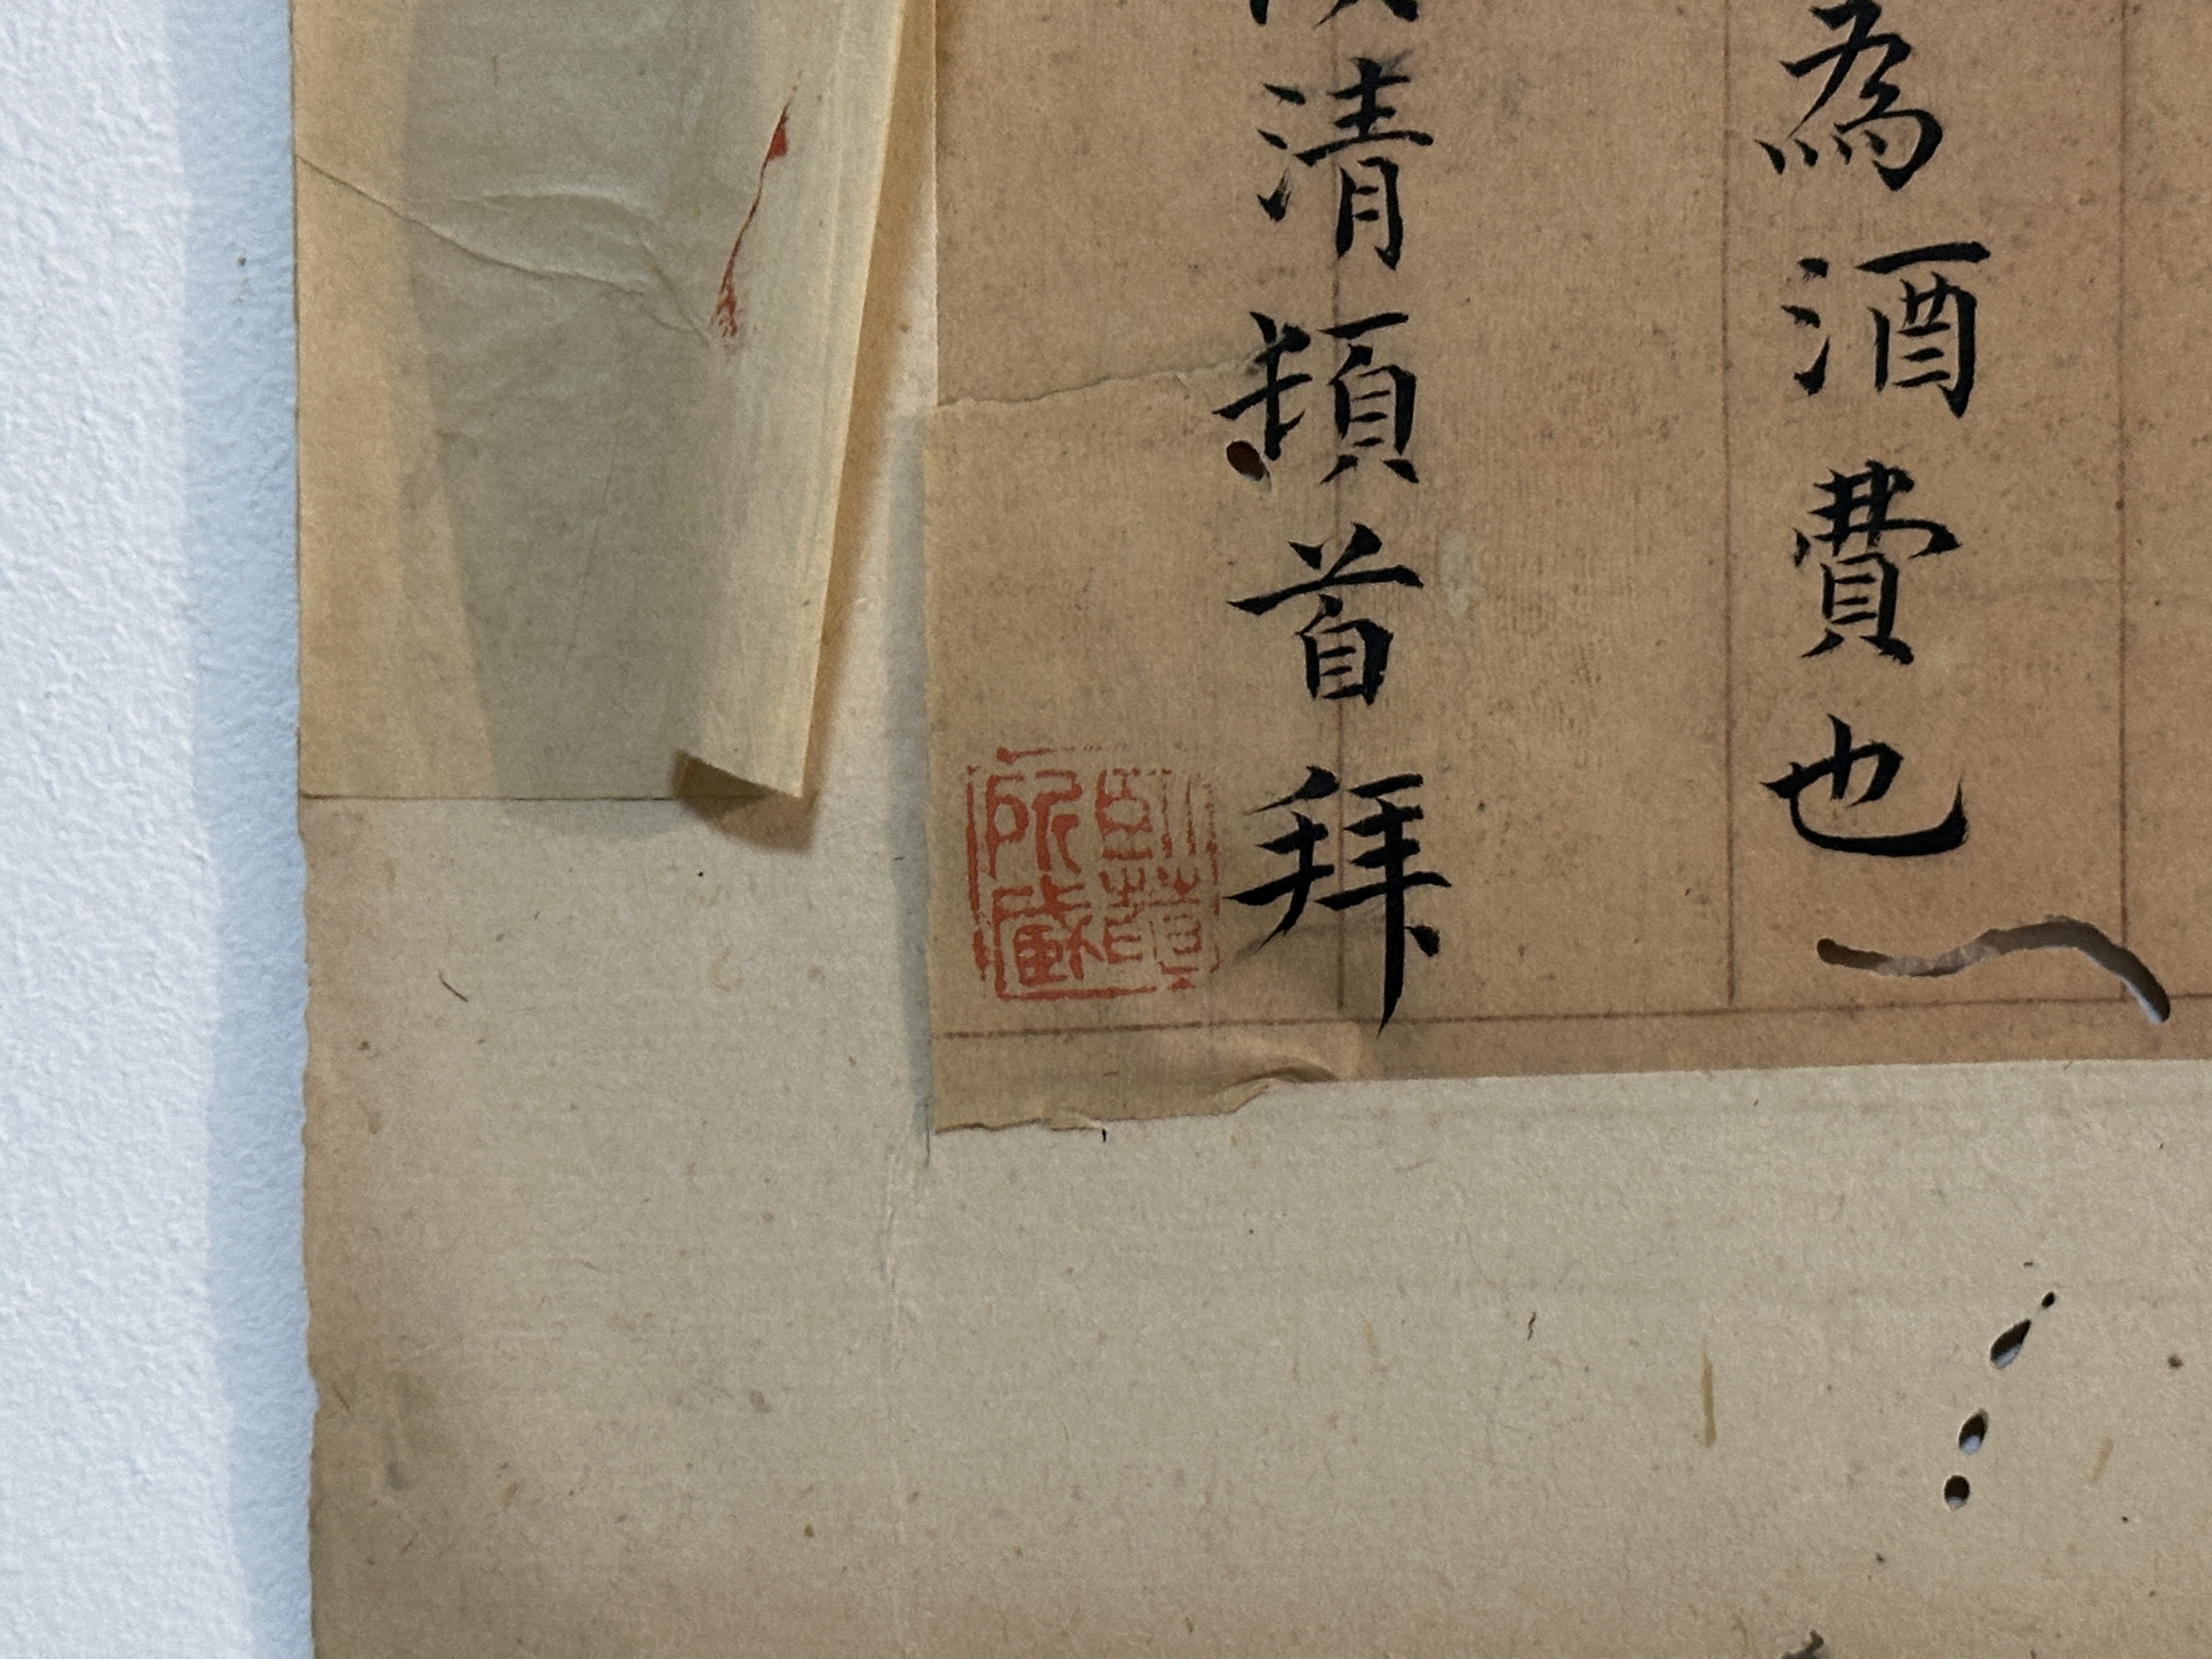 為酒費也
清頓首拜
所藏